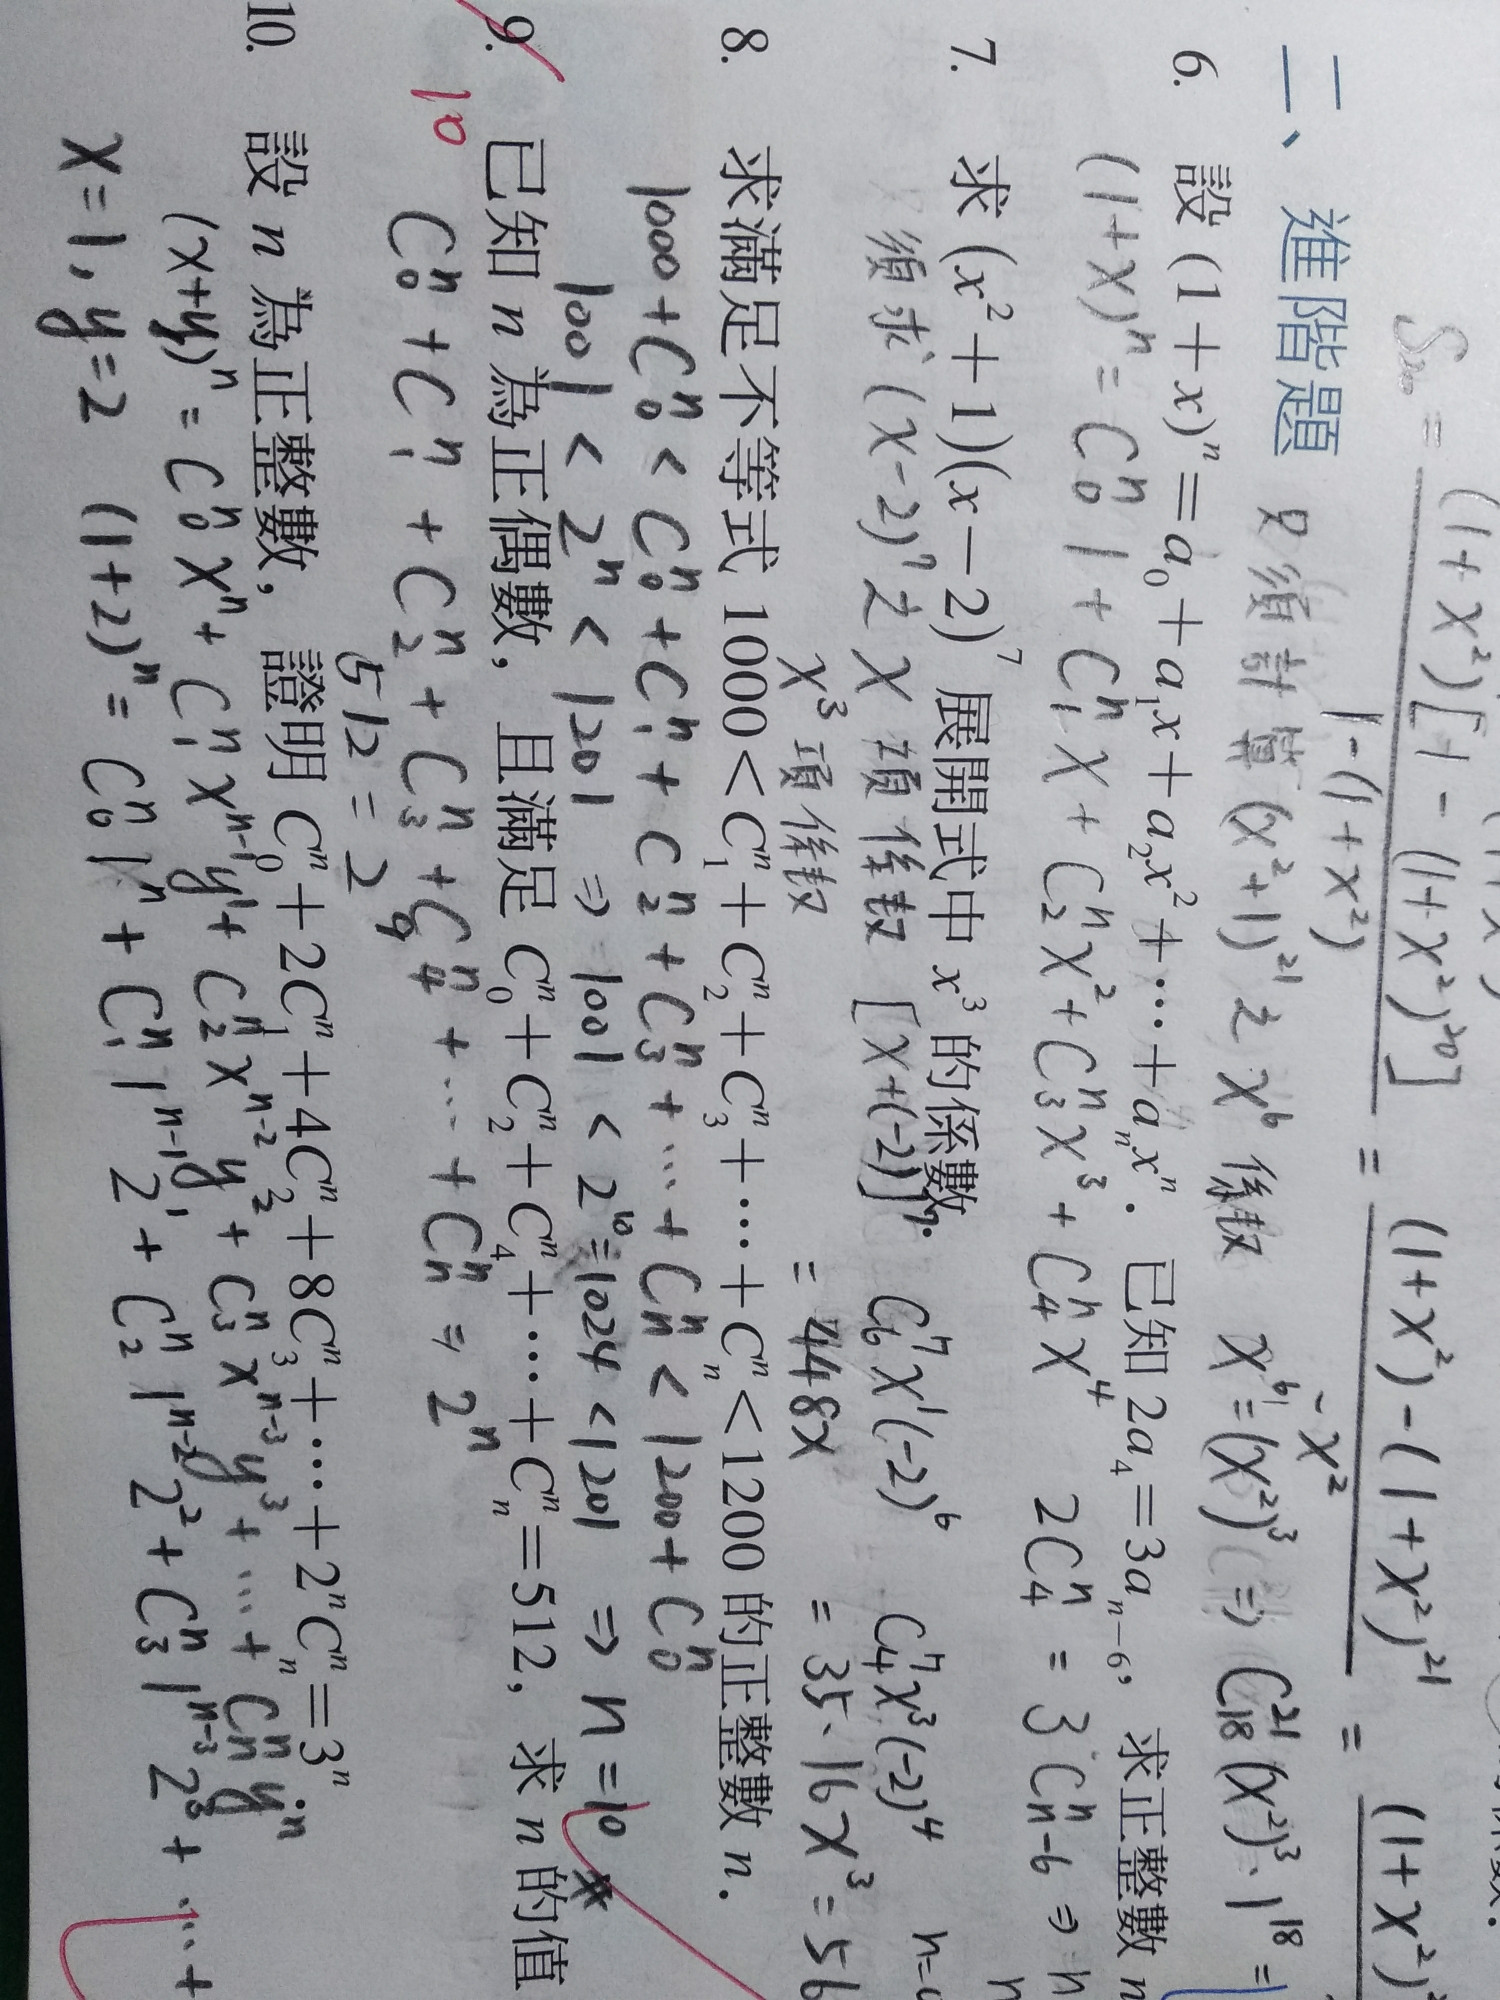 S₂₀ = (1+x²)[1-(1+x²)²⁰] / 1-(1+x²) = (1+x²)-(1+x²)²¹ / -x² = (1+x²)
二、進階題 只須計算 (x²+1)²¹ 之 x⁶ 係數 x⁶=(x²)³ ⇒ C²¹₁₈(x²)³·1¹⁸ =
6. 設 (1+x)ⁿ=a₀+a₁x+a₂x²+⋯+aₙxⁿ. 已知 2a₄=3aₙ₋₆, 求正整數 n
(1+x)ⁿ = Cⁿ₀ 1 + Cⁿ₁ x + Cⁿ₂ x² + Cⁿ₃ x³ + Cⁿ₄ x⁴ 2Cⁿ₄ = 3Cⁿₙ₋₆ ⇒ n
7. 求 (x²+1)(x-2)⁷ 展開式中 x³ 的係數.
須求 (x-2)⁷ 之 x 項係數 [x+(-2)]⁷ C⁷₆x¹(-2)⁶ C⁷₄x³(-2)⁴
x³ 項係數 = 448x = 35·16x³ = 56
8. 求滿足不等式 1000<Cⁿ₁+Cⁿ₂+Cⁿ₃+⋯+Cⁿₙ<1200 的正整數 n.
1000+Cⁿ₀ < Cⁿ₀ + Cⁿ₁ + Cⁿ₂ + Cⁿ₃ + ⋯ + Cⁿₙ < 1200 + Cⁿ₀
1001 < 2ⁿ < 1201 ⇒ 1001 < 2¹⁰=1024 < 1201 ⇒ n = 10
9. 已知 n 為正偶數, 且滿足 Cⁿ₀+Cⁿ₂+Cⁿ₄+⋯+Cⁿₙ=512, 求 n 的值
10 Cⁿ₀ + Cⁿ₁ + Cⁿ₂ + Cⁿ₃ + Cⁿ₄ + ⋯ + Cⁿₙ = 2ⁿ
512 = 2⁹
10. 設 n 為正整數, 證明 Cⁿ₀+2Cⁿ₁+4Cⁿ₂+8Cⁿ₃+⋯+2ⁿCⁿₙ=3ⁿ.
(x+y)ⁿ = Cⁿ₀xⁿ + Cⁿ₁xⁿ⁻¹y¹ + Cⁿ₂xⁿ⁻²y² + Cⁿ₃xⁿ⁻³y³ + ⋯ + Cⁿₙyⁿ
x=1, y=2 (1+2)ⁿ = Cⁿ₀1ⁿ + Cⁿ₁1ⁿ⁻¹2¹ + Cⁿ₂1ⁿ⁻²2² + Cⁿ₃1ⁿ⁻³2³ + ⋯ +